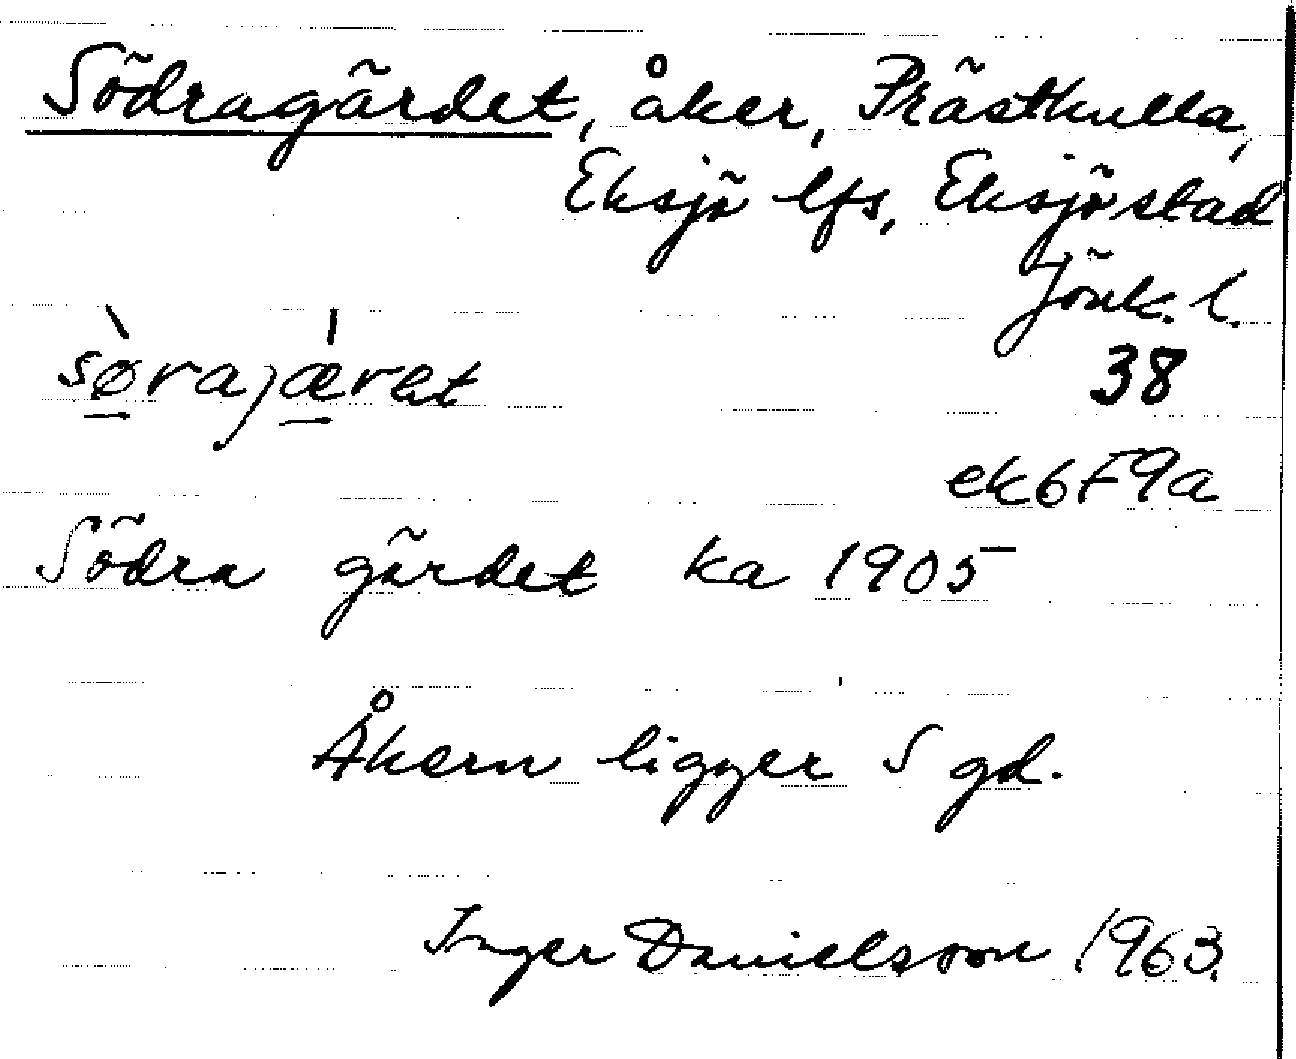 Södragärdet, åker, Prästkulla,
Eksjö lfs, Eksjö stad
Jönk. l.
sø̀rajæ̍ret
38
ek6F9a
Södra gärdet ka 1905
Åkern ligger S gd.
Inger Danielsson 1963.